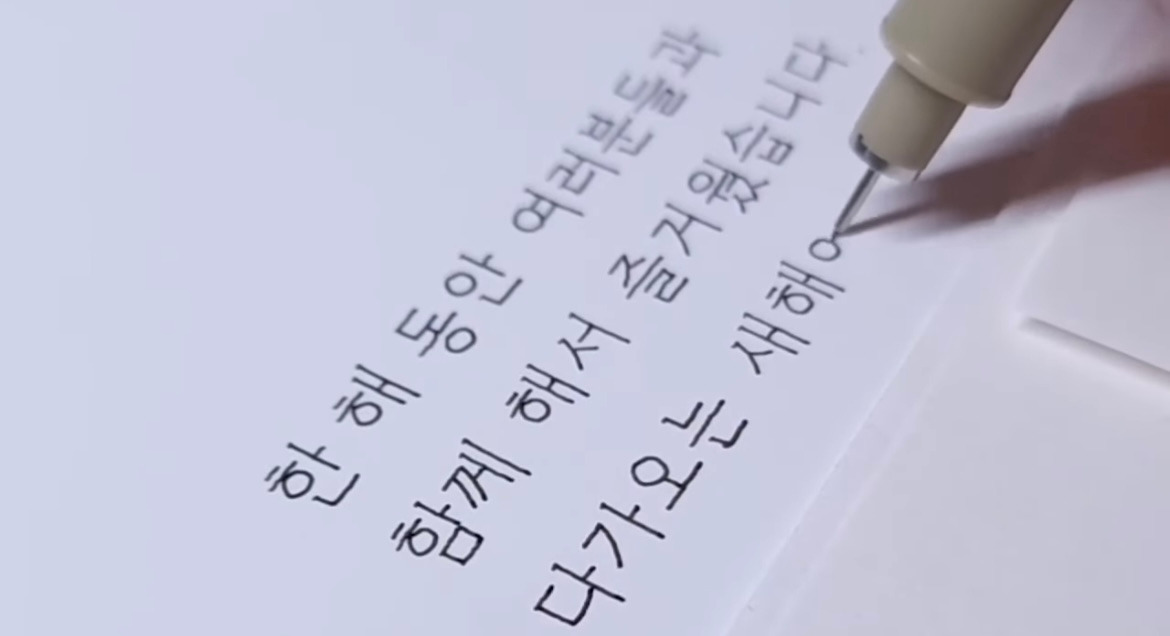 한 해 동안 여러분들과
함께 해서 즐거웠습니다
다가오는 새해